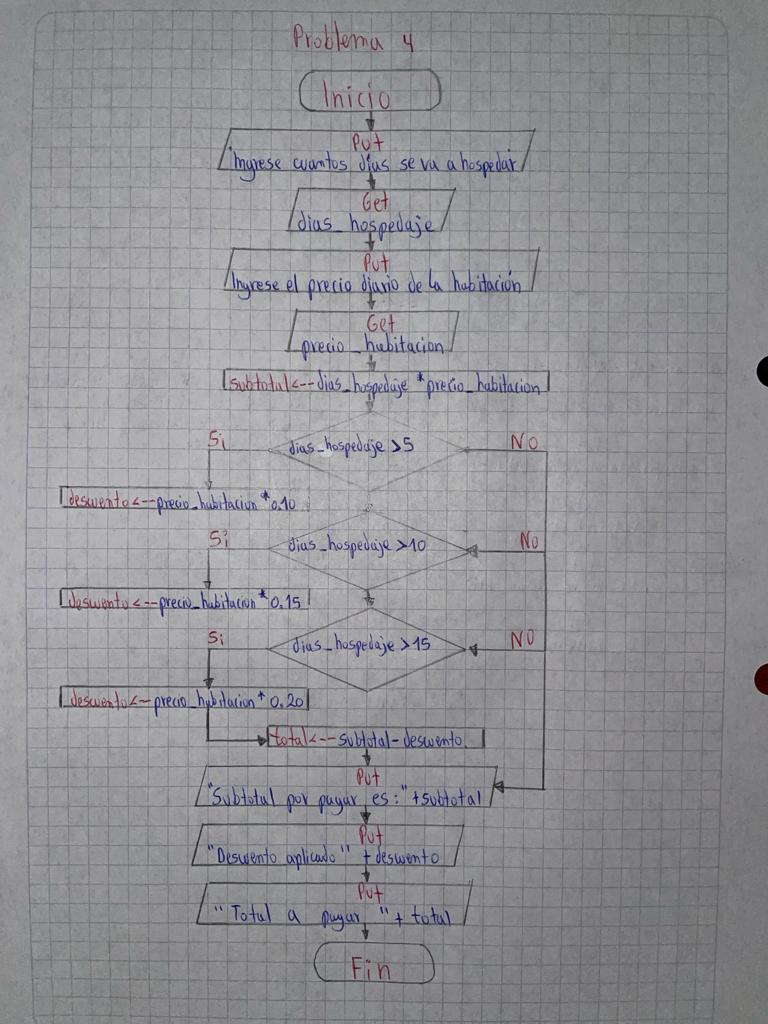 Problema 4
Inicio
Put
"Ingrese cuantos días se va a hospedar
Get
dias_hospedaje
Put
Ingrese el precio diario de la habitación
Get
precio_habitacion
subtotal<--dias_hospedaje *precio_habitacion
Si
dias_hospedaje >5
NO
descuento<--precio_habitacion*0.10
Si
dias_hospedaje >10
No
descuento<--precio_habitacion*0.15
Si
dias_hospedaje >15
NO
descuento<--precio_habitacion* 0.20
total<--subtotal-descuento
Put
"Subtotal por pagar es:"+subtotal
Put
"Descuento aplicado" + descuento
Put
"Total a pagar "+ total
Fin